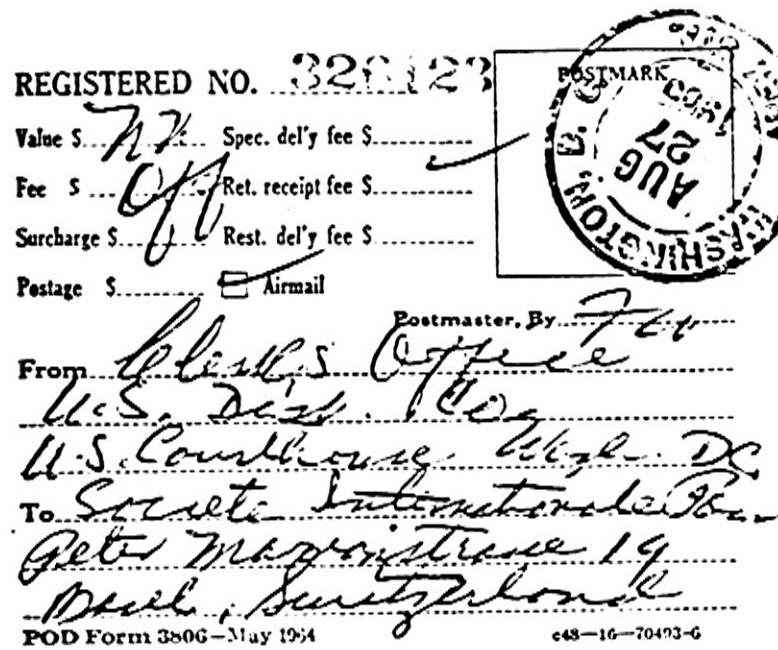 REGISTERED NO. 326123
POSTMARK
WASHINGTON, D. C.
AUG
27
Value $ Spec. del'y fee $
Fee $ Off Ret. receipt fee $
Surcharge $ Rest. del'y fee $
Postage $ Airmail
Postmaster, By
From Clerk's Office
U.S. Dist. Co
U.S. Courthouse Wash. DC
To Societe Internationale Pour
Peter Merianstrasse 19
Basel, Switzerland
POD Form 3806—May 1964
c48—16—70493-6